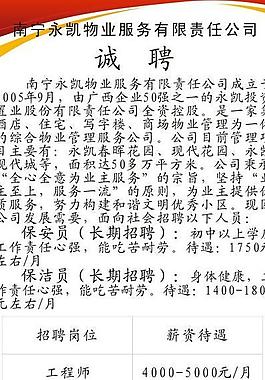 南宁永凯物业服务有限责任公司
诚 聘
南宁永凯物业服务有限责任公司成立于
2005年9月，由广西企业50强之一的永凯投资
置业股份有限责任公司全资控股。是一家
酒店、住宅、写字楼、商场物业管理为一
的综合物业管理服务公司。公司目前管理
目主要有：永凯春晖花园、现代花园、永凯
现代城等，面积达50多万平方米。公司秉
“全心全意为业主服务”的宗旨，坚持“
主至上，服务一流”的原则，为业主提供
质服务，努力构建和谐文明优秀小区。现
公司发展需要，面向社会招聘以下人员：
保安员（长期招聘）：初中以上学历
工作责任心强，能吃苦耐劳。待遇：1750
左右/月
保洁员（长期招聘）：身体健康，工
作责任心强，能吃苦耐劳。待遇：1400-180
元左右/月
招聘岗位 薪资待遇
工程师 4000-5000元/月